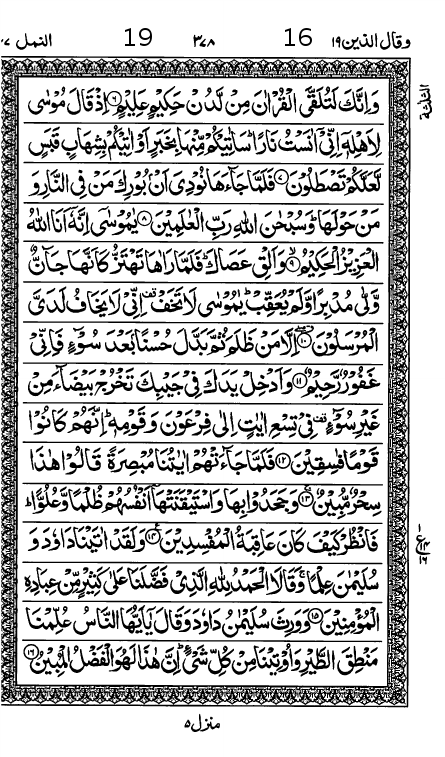 وقال الذين ١٩ 16 ٣٧٨ 19 النمل ٢٧
وَاِنَّكَ لَتُلَقَّى الْقُرْاٰنَ مِنْ لَّدُنْ حَكِيْمٍ عَلِيْمٍ ﴿۶﴾ اِذْ قَالَ مُوْسٰى
لِاَهْلِهٖۤ اِنِّیْۤ اٰنَسْتُ نَارًا ؕ سَاٰتِيْكُمْ مِّنْهَا بِخَبَرٍ اَوْ اٰتِيْكُمْ بِشِهَابٍ قَبَسٍ
لَّعَلَّكُمْ تَصْطَلُوْنَ ﴿۷﴾ فَلَمَّا جَآءَهَا نُوْدِیَ اَنْۢ بُوْرِكَ مَنْ فِی النَّارِ وَ
مَنْ حَوْلَهَا ؕ وَسُبْحٰنَ اللّٰهِ رَبِّ الْعٰلَمِيْنَ ﴿۸﴾ يٰمُوْسٰۤى اِنَّهٗۤ اَنَا اللّٰهُ
الْعَزِيْزُ الْحَكِيْمُ ﴿۹﴾ وَاَلْقِ عَصَاكَ ؕ فَلَمَّا رَاٰهَا تَهْتَزُّ كَاَنَّهَا جَآنٌّ
وَّلّٰى مُدْبِرًا وَّلَمْ يُعَقِّبْ ؕ يٰمُوْسٰى لَا تَخَفْ قف اِنِّیْ لَا يَخَافُ لَدَیَّ
الْمُرْسَلُوْنَ ﴿۱۰﴾ اِلَّا مَنْ ظَلَمَ ثُمَّ بَدَّلَ حُسْنًۢا بَعْدَ سُوْٓءٍ فَاِنِّیْ
غَفُوْرٌ رَّحِيْمٌ ﴿۱۱﴾ وَاَدْخِلْ يَدَكَ فِیْ جَيْبِكَ تَخْرُجْ بَيْضَآءَ مِنْ
غَيْرِ سُوْٓءٍ قف فِیْ تِسْعِ اٰيٰتٍ اِلٰى فِرْعَوْنَ وَقَوْمِهٖ ؕ اِنَّهُمْ كَانُوْا
قَوْمًا فٰسِقِيْنَ ﴿۱۲﴾ فَلَمَّا جَآءَتْهُمْ اٰيٰتُنَا مُبْصِرَةً قَالُوْا هٰذَا
سِحْرٌ مُّبِيْنٌ ﴿۱۳﴾ وَجَحَدُوْا بِهَا وَاسْتَيْقَنَتْهَاۤ اَنْفُسُهُمْ ظُلْمًا وَّعُلُوًّا ؕ
فَانْظُرْ كَيْفَ كَانَ عَاقِبَةُ الْمُفْسِدِيْنَ ﴿۱۴﴾ وَلَقَدْ اٰتَيْنَا دَاوٗدَ وَ
سُلَيْمٰنَ عِلْمًا ۚ وَقَالَا الْحَمْدُ لِلّٰهِ الَّذِیْ فَضَّلَنَا عَلٰى كَثِيْرٍ مِّنْ عِبَادِهِ
الْمُؤْمِنِيْنَ ﴿۱۵﴾ وَوَرِثَ سُلَيْمٰنُ دَاوٗدَ وَقَالَ يٰۤاَيُّهَا النَّاسُ عُلِّمْنَا
مَنْطِقَ الطَّيْرِ وَاُوْتِيْنَا مِنْ كُلِّ شَیْءٍ ؕ اِنَّ هٰذَا لَهُوَ الْفَضْلُ الْمُبِيْنُ ﴿۱۶﴾
منزل ٥
الثلثة